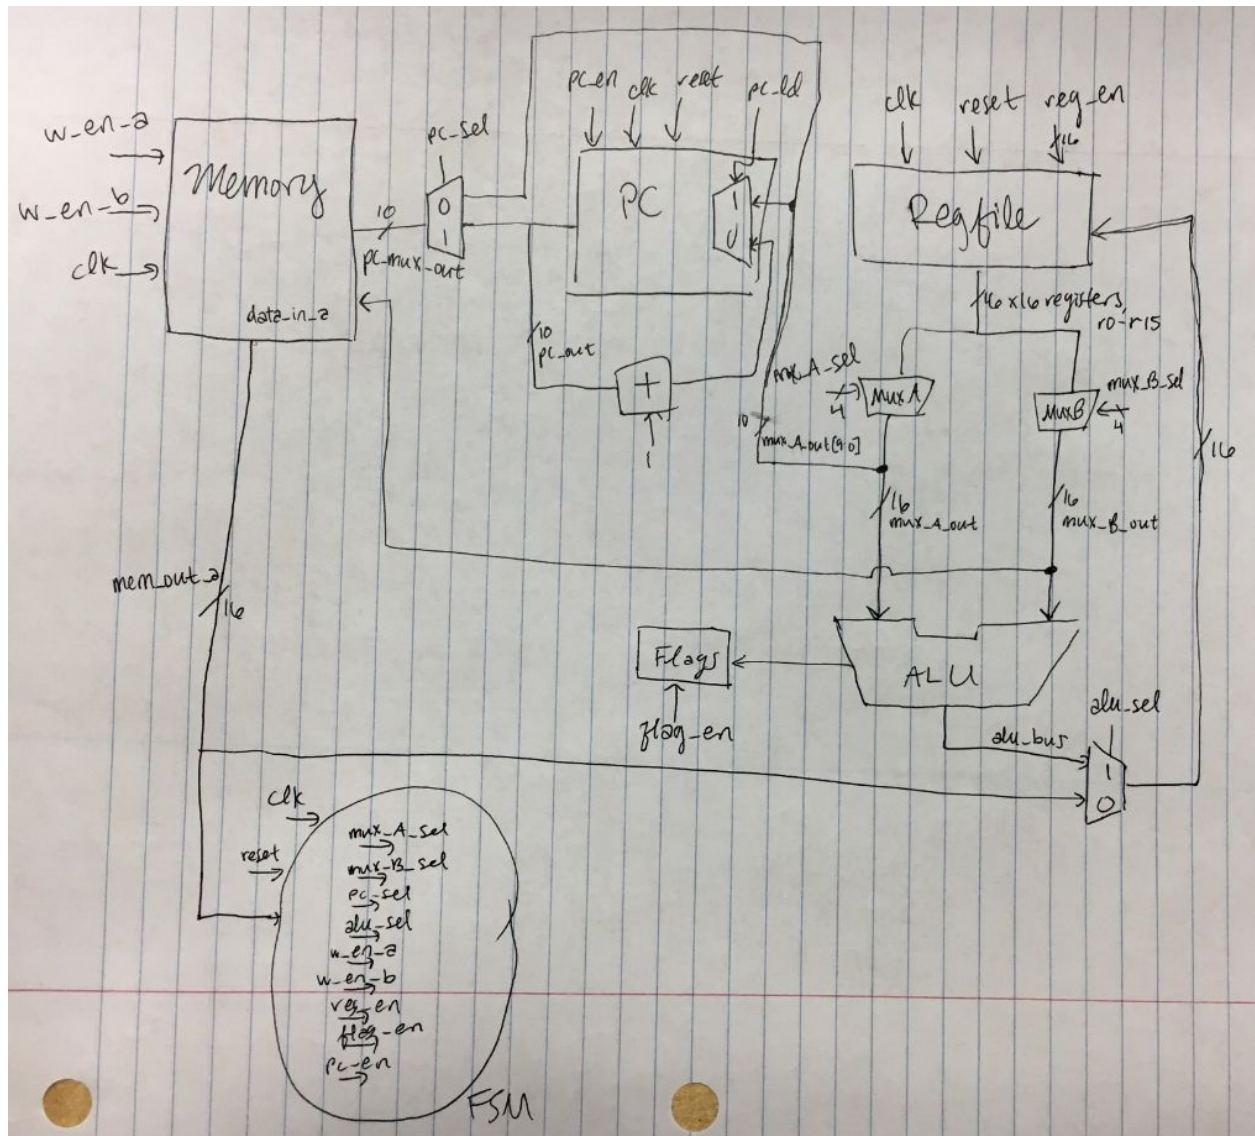 w_en_a
w_en_b
clk
Memory
data_in_a
10
pc_mux_out
pc_sel
0
1
pc_en
clk
reset
pc_ld
PC
1
0
10
pc_out
+
1
clk
reset
reg_en
16
Regfile
16x16 registers,
r0-r15
mux_A_sel
4
MuxA
mux_B_sel
4
MuxB
10
mux_A_out[9:0]
16
mux_A_out
16
mux_B_out
16
mem_out_a
16
Flags
flag_en
ALU
alu_bus
alu_sel
1
0
clk
reset
mux_A_sel
mux_B_sel
pc_sel
alu_sel
w_en_a
w_en_b
reg_en
flag_en
pc_en
FSM